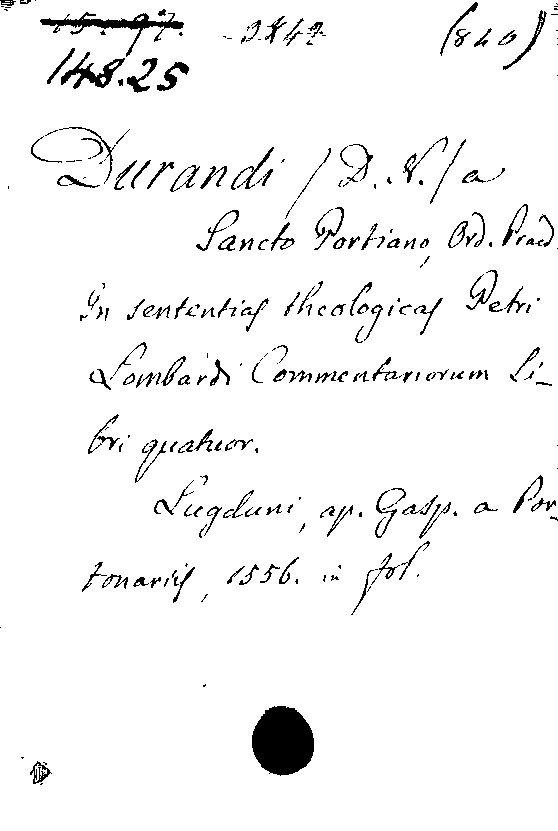 15. 97. 3847 (840)
148.25
Durandi / D. N. / a
Sancto Portiano, Ord. Praed
In sententias theologicas Petri
Lombardi Commentariorum Li-
bri quatuor.
Lugduni, ap. Gasp. a Por-
tonariis, 1556. in fol.